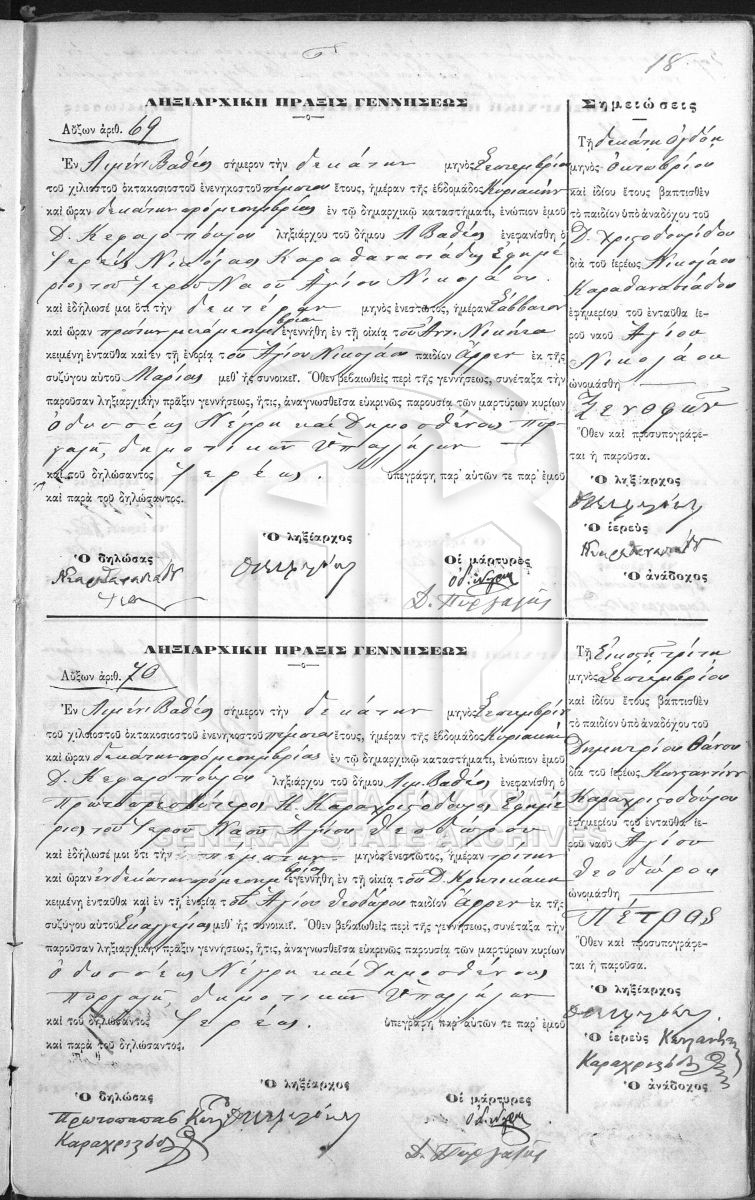 18
ΛΗΞΙΑΡΧΙΚΗ ΠΡΑΞΙΣ ΓΕΝΝΗΣΕΩΣ
Αὔξων ἀριθ. 69
Ἐν Λιμένι Βαθέος σήμερον τὴν δεκάτην μηνὸς Σεπτεμβρίου
τοῦ χιλιοστοῦ ὀκτακοσιοστοῦ ἐνενηκοστοῦ πέμπτου ἔτους, ἡμέραν τῆς ἑβδομάδος Κυριακὴν
καὶ ὥραν δεκάτην πρὸ μεσημβρίας ἐν τῷ δημαρχικῷ καταστήματι, ἐνώπιον ἐμοῦ
Δ. Κεφαλοπούλου ληξιάρχου τοῦ δήμου Λ Βαθέος ἐνεφανίσθη ὁ
Ἱερεὺς Νικόλαος Καραθανασιάδης Ἐφημέ
ριος τοῦ Ἱεροῦ Ναοῦ Ἁγίου Νικολάου.
καὶ ἐδήλωσέ μοι ὅτι τὴν δευτέραν μηνὸς ἐνεστῶτος, ἡμέραν Σάββατον
καὶ ὥραν πρώτην μετὰ μεσημβρίαν ἐγεννήθη ἐν τῇ οἰκίᾳ τοῦ Ἀντ. Νικήτα
κειμένῃ ἐνταῦθα καὶ ἐν τῇ ἐνορίᾳ τοῦ Ἁγίου Νικολάου παιδίον Ἄρρεν ἐκ τῆς
συζύγου αὐτοῦ Μαρίας μεθ᾽ ἧς συνοικεῖ. Ὅθεν βεβαιωθεὶς περὶ τῆς γεννήσεως, συνέταξα τὴν
παροῦσαν ληξιαρχικὴν πρᾶξιν γεννήσεως, ἥτις, ἀναγνωσθεῖσα εὐκρινῶς παρουσίᾳ τῶν μαρτύρων κυρίων
Ὀδυσσέως Νέγρη καὶ Δημοσθένους Πυρ
γαλῆ, δημοτικῶν Ὑπαλλήλων
καὶ τοῦ δηλώσαντος Ἱερέως. ὑπεγράφη παρ᾽ αὐτῶν τε παρ᾽ ἐμοῦ
καὶ παρὰ τοῦ δηλώσαντος.
Ὁ δηλώσας
Ὁ ληξίαρχος
Οἱ μάρτυρες
Δ. Πυργαλῆς
Σημειώσεις
Τῇ δεκάτῃ Ὀγδόῃ
μηνὸς Ὀκτωβρίου
καὶ ἰδίου ἔτους βαπτισθὲν
τὸ παιδίον ὑπὸ ἀναδόχου τοῦ
Δ. Χριστοδουλίδου
διὰ τοῦ ἱερέως Νικολάου
Καραθανασιάδου
ἐφημερίου τοῦ ἐνταῦθα ἱε-
ροῦ ναοῦ Ἁγίου
Νικολάου
ὠνομάσθη
Ξενοφῶν
Ὅθεν καὶ προσυπογράφε-
ται ἡ παροῦσα.
Ὁ ληξίαρχος
Ὁ ἱερεὺς
Ὁ ἀνάδοχος
ΛΗΞΙΑΡΧΙΚΗ ΠΡΑΞΙΣ ΓΕΝΝΗΣΕΩΣ
Αὔξων ἀριθ. 70
Ἐν Λιμένι Βαθέος σήμερον τὴν δεκάτην μηνὸς Σεπτεμβρίου
τοῦ χιλιοστοῦ ὀκτακοσιοστοῦ ἐνενηκοστοῦ πέμπτου ἔτους, ἡμέραν τῆς ἑβδομάδος Κυριακὴν
καὶ ὥραν δεκάτην πρὸ μεσημβρίας ἐν τῷ δημαρχικῷ καταστήματι, ἐνώπιον ἐμοῦ
Δ. Κεφαλοπούλου ληξιάρχου τοῦ δήμου Λιμ. Βαθέος ἐνεφανίσθη ὁ
Πρωτοπρεσβύτερος Κ. Καραχριστόδουλος Ἐφημέ
ριος τοῦ Ἱεροῦ Ναοῦ Ἁγίου Θεοδώρου
καὶ ἐδήλωσέ μοι ὅτι τὴν πέμπτην μηνὸς ἐνεστῶτος, ἡμέραν τρίτην
καὶ ὥραν ἑνδεκάτην πρὸ μεσημβρίας ἐγεννήθη ἐν τῇ οἰκίᾳ τοῦ Δ. Κρητικάκη
κειμένῃ ἐνταῦθα καὶ ἐν τῇ ἐνορίᾳ τοῦ Ἁγίου Θεοδώρου παιδίον Ἄρρεν ἐκ τῆς
συζύγου αὐτοῦ Εὐαγγελίας μεθ᾽ ἧς συνοικεῖ. Ὅθεν βεβαιωθεὶς περὶ τῆς γεννήσεως, συνέταξα τὴν
παροῦσαν ληξιαρχικὴν πρᾶξιν γεννήσεως, ἥτις, ἀναγνωσθεῖσα εὐκρινῶς παρουσίᾳ τῶν μαρτύρων κυρίων
Ὀδυσσέως Νέγρη καὶ Δημοσθένους
Πυργαλῆ, δημοτικῶν Ὑπαλλήλων
καὶ τοῦ δηλώσαντος Ἱερέως. ὑπεγράφη παρ᾽ αὐτῶν τε παρ᾽ ἐμοῦ
καὶ παρὰ τοῦ δηλώσαντος.
Ὁ δηλώσας
Πρωτοπαπᾶς
Καραχριστόδ
Ὁ ληξίαρχος
Οἱ μάρτυρες
Δ. Πυργαλῆς
Τῇ Εἰκοστῇ τρίτῃ
μηνὸς Σεπτεμβρίου
καὶ ἰδίου ἔτους βαπτισθὲν
τὸ παιδίον ὑπὸ ἀναδόχου τοῦ
Δημητρίου Θάνου
διὰ τοῦ ἱερέως Κωνσταντίνου
Καραχριστοδούλου
ἐφημερίου τοῦ ἐνταῦθα ἱε-
ροῦ ναοῦ Ἁγίου
Θεοδώρου
ὠνομάσθη
Πέτρος
Ὅθεν καὶ προσυπογράφε-
ται ἡ παροῦσα.
Ὁ ληξίαρχος
Ὁ ἱερεὺς
Καραχριστόδ
Ὁ ἀνάδοχος
ΓΕΝΙΚΑ ΑΡΧΕΙΑ ΤΟΥ ΚΡΑΤΟΥΣ
GENERAL STATE ARCHIVES